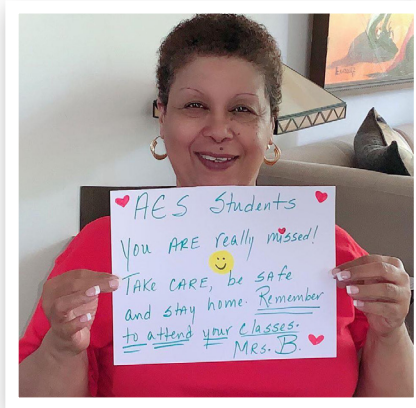 AES Students
You ARE really missed!
TAKE CARE, be SAFE
and stay home. Remember
to attend your classes.
Mrs. B.